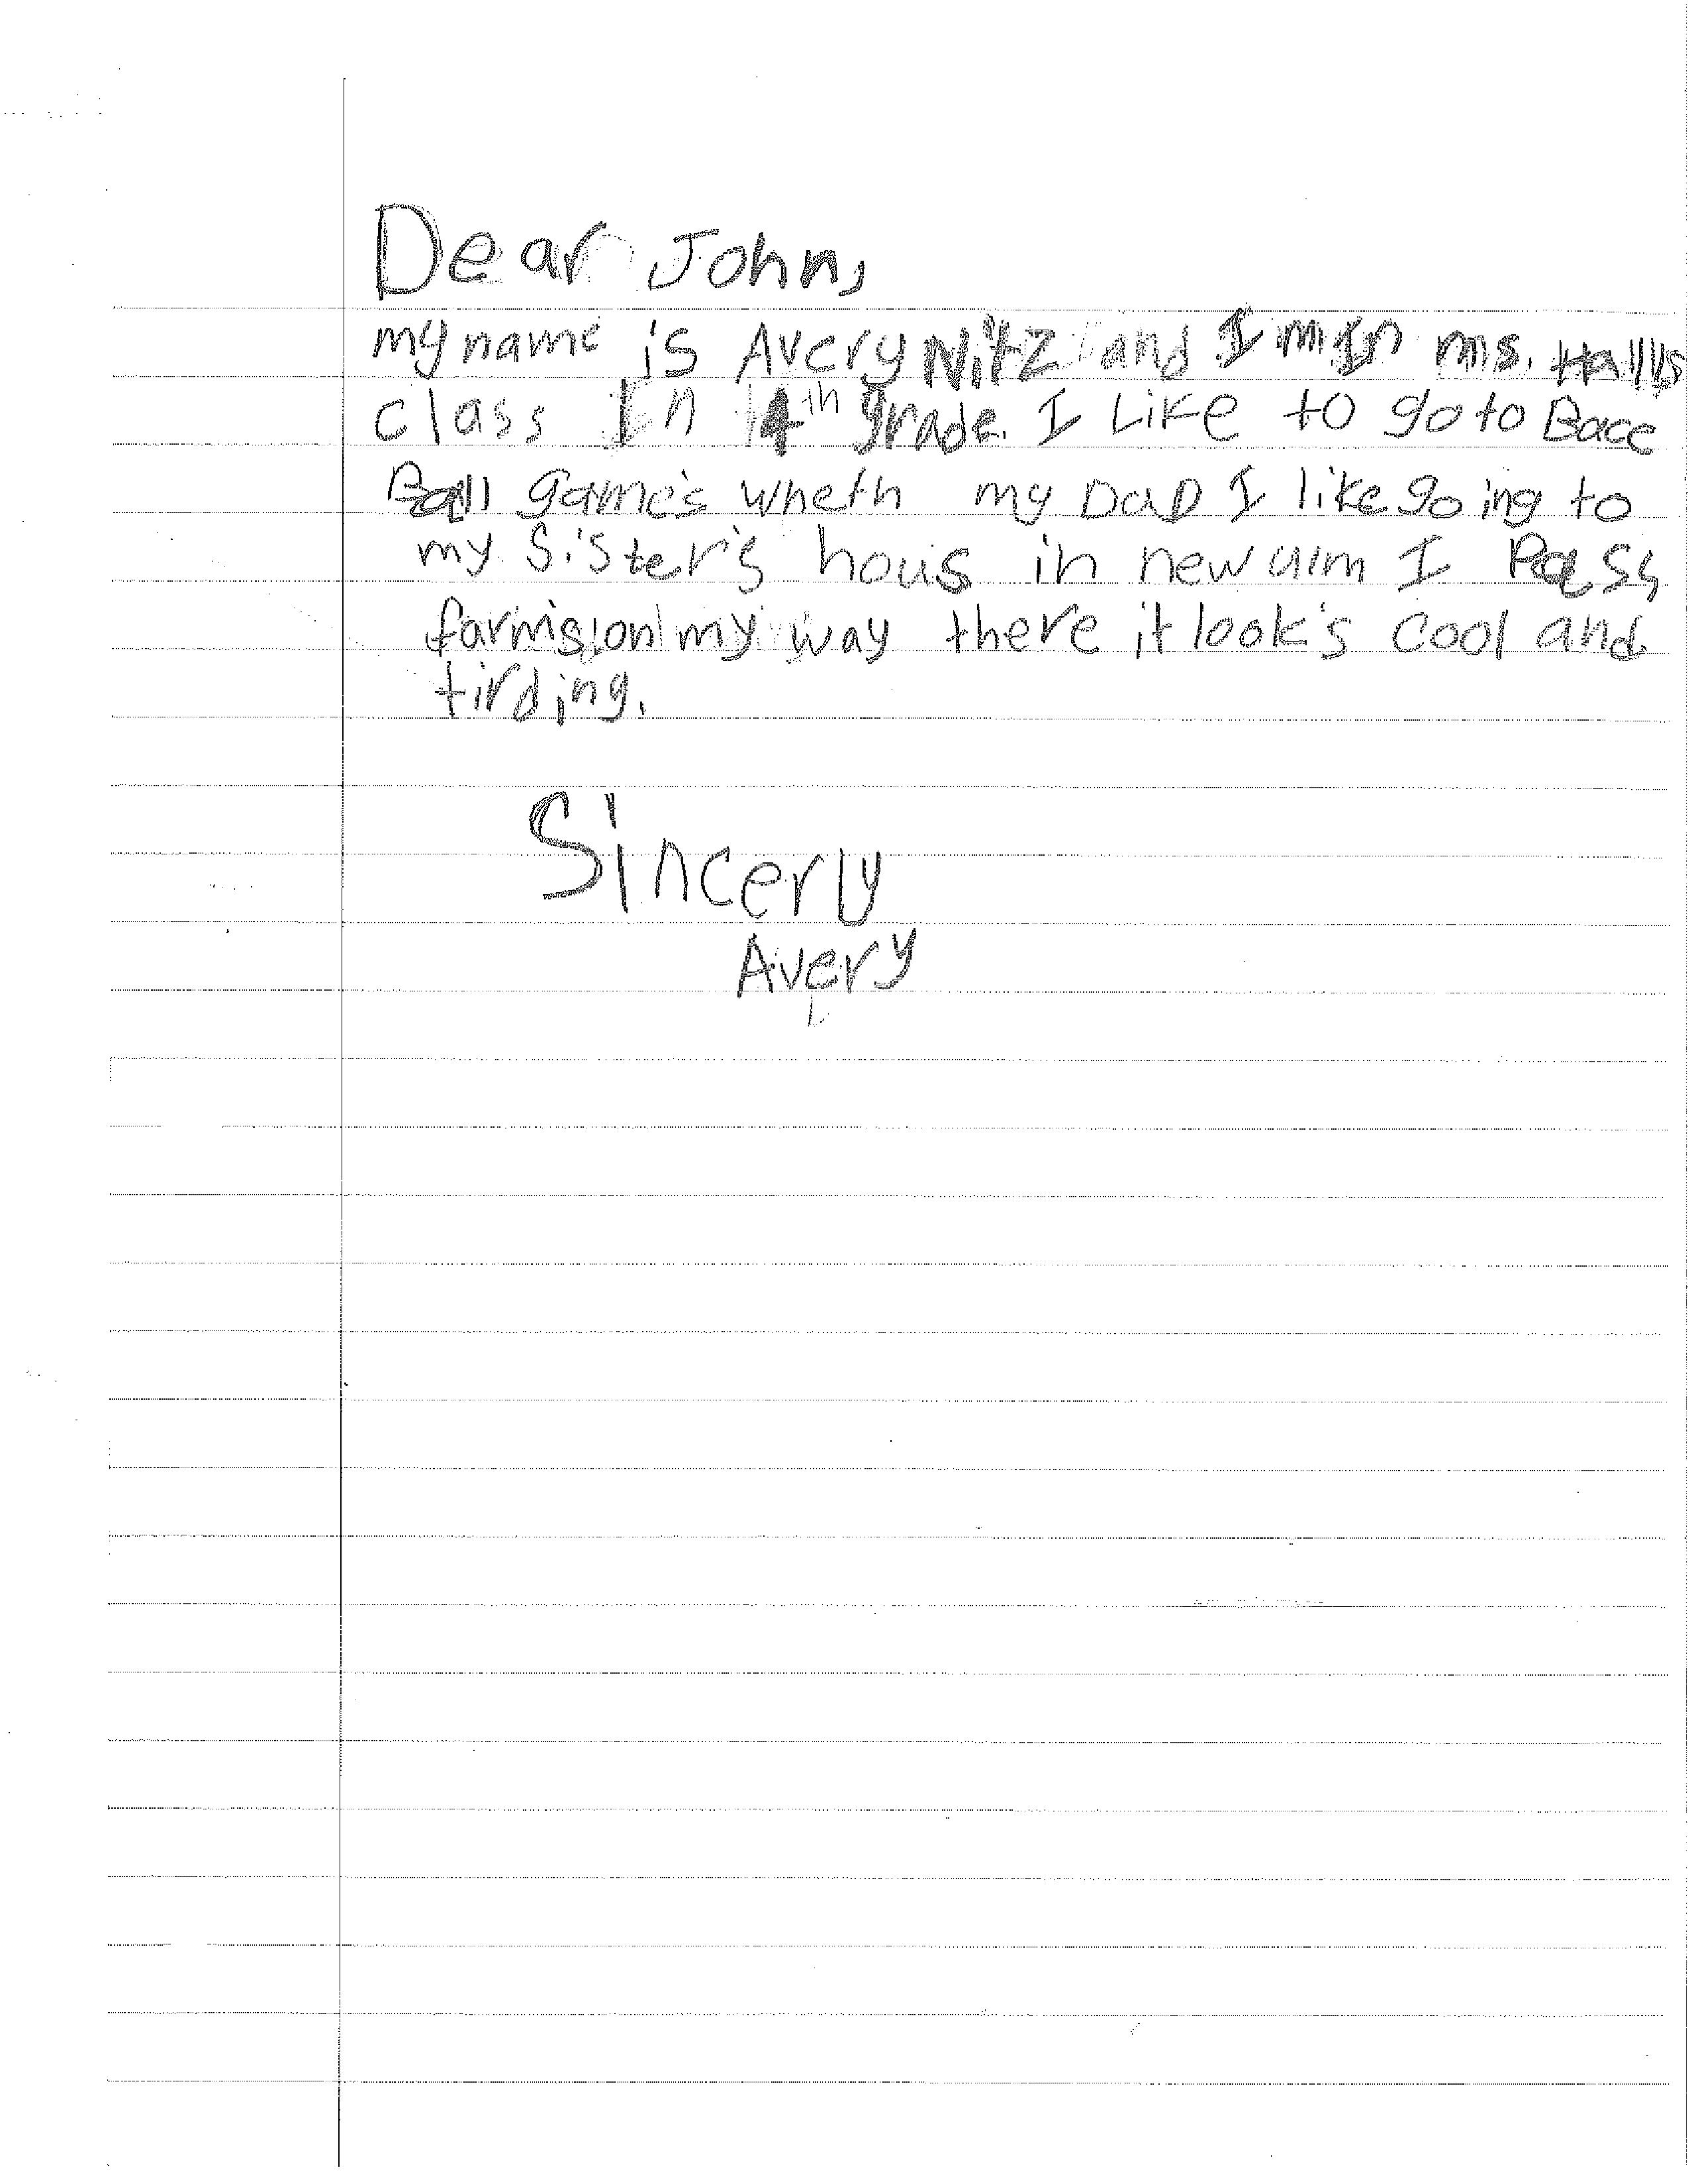 Dear John,
my name is Avery Nitz and I m In ms. Hall's
class In 4th grade. I Like to go to Bace
Ball game's wheth my DaD I like going to
my Sister's hous in new ulm I Pass
farms on my way there it look's cool and
tirding.
Sincerly
Avery